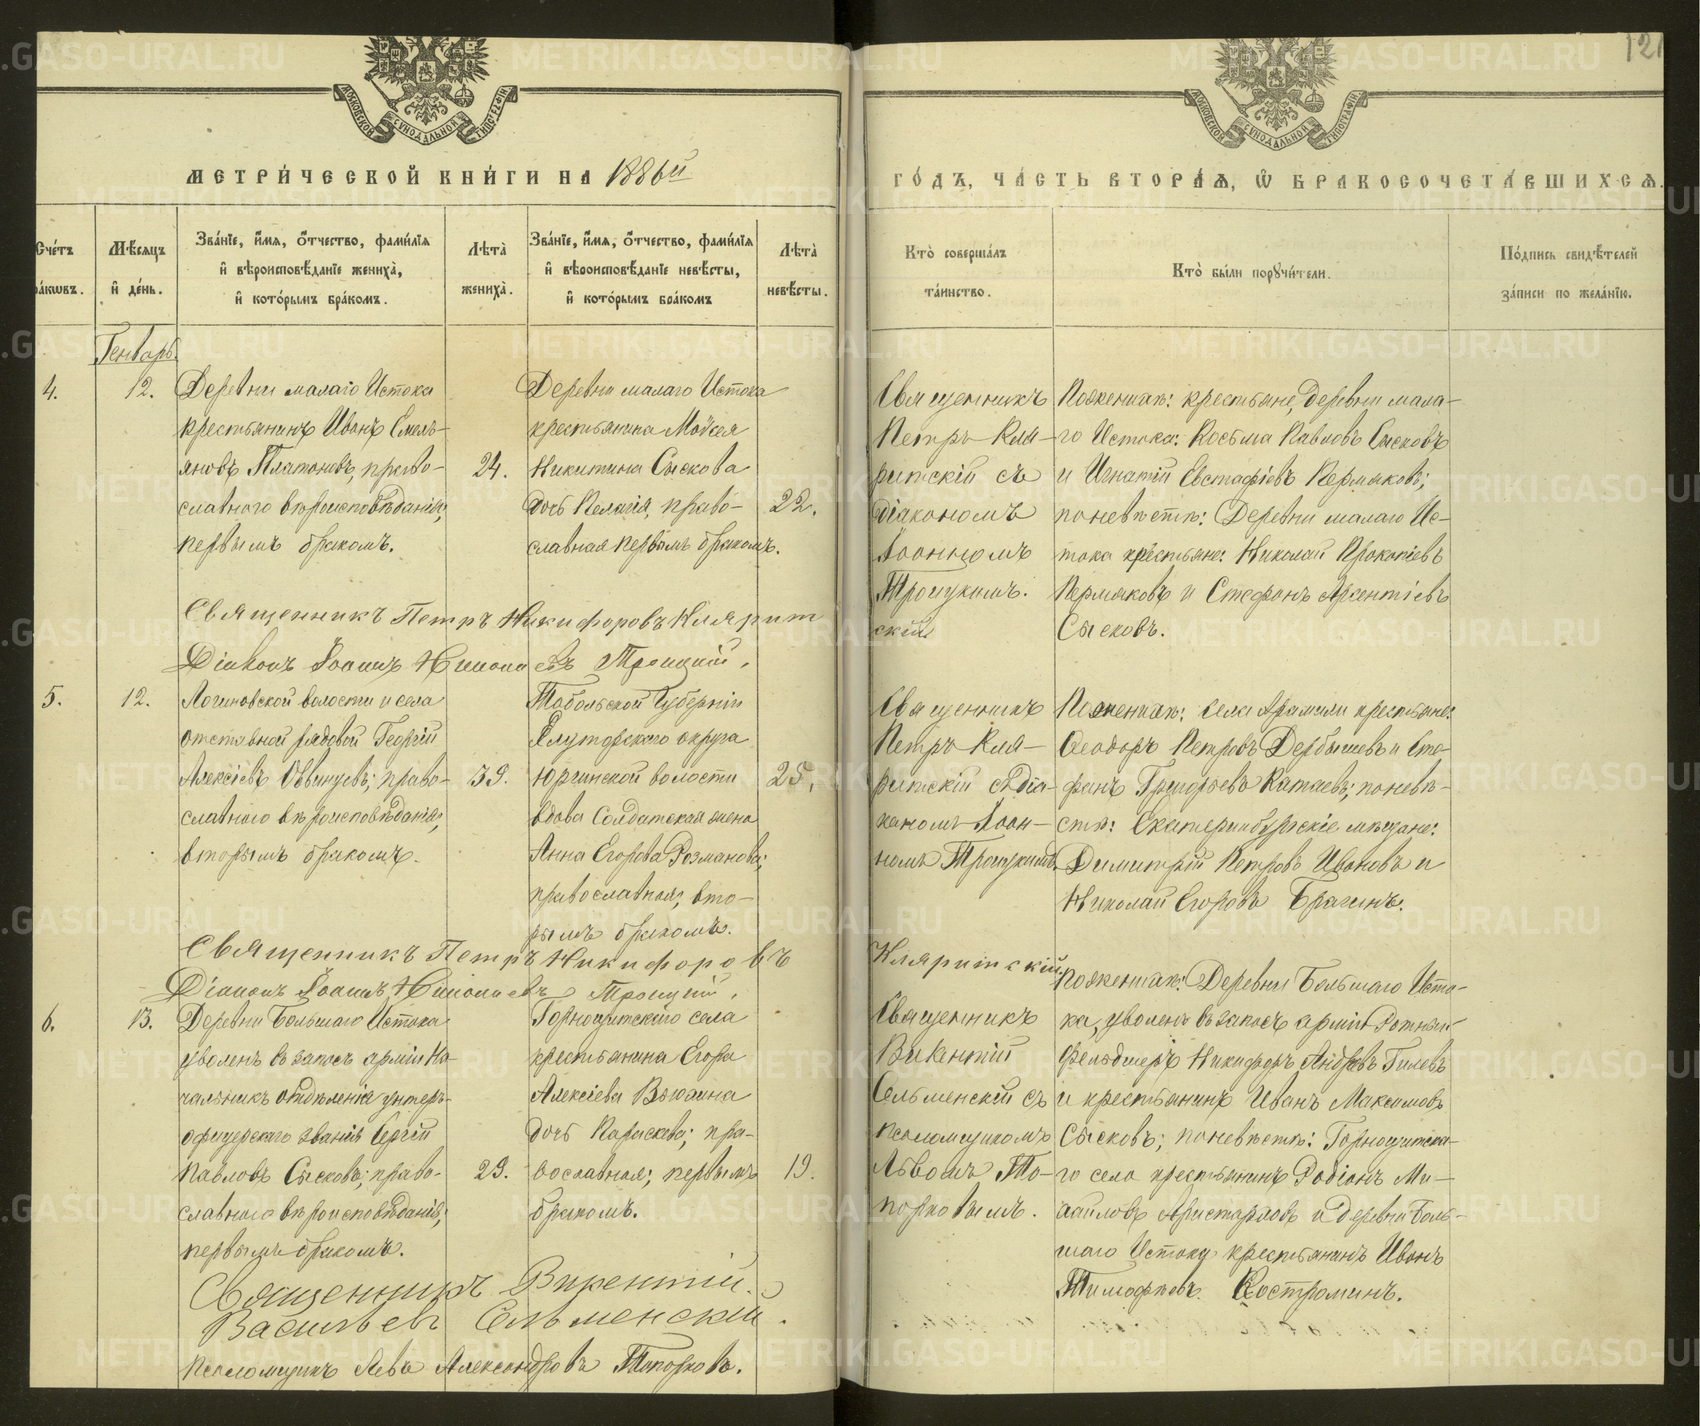 121
МОСКОВСКОЙ СѴНОДАЛЬНОЙ ТИПОГРАФІИ
МОСКОВСКОЙ СѴНОДАЛЬНОЙ ТИПОГРАФІИ
МЕТРИ́ЧЕСКОЙ КНИ́ГИ НА 1886й
ГО́ДЪ, ЧА́СТЬ ВТОРА́Я, Ѡ҆ БРАКОСОЧЕТА́ВШИХСЯ.
Сче́тъ
ра́ковъ.
Мѣ́сяцъ
и де́нь.
Зва́нїе, и́мя, о́тчество, фами́лїя
и вѣроисповѣ́данїе жениха̀,
и кото́рымъ бра́комъ.
Лѣта̀
жениха̀.
Зва́нїе, и́мя, о́тчество, фами́лїя
и вѣроисповѣ́данїе невѣ́сты,
и кото́рымъ бра́комъ
Лѣта̀
невѣ́сты.
Кто̀ соверша́лъ
та́инство.
Кто̀ бы́ли поручи́тели.
По́дпись свидѣ́телей
за́писи по жела́нїю.
Генварь
4.
12.
Деревни малаго Истока
крестьянинъ Иванъ Емель-
яновъ Платоновъ, право-
славнаго вѣроисповѣданія,
первымъ бракомъ.
24.
Деревни малаго Истока
крестьянина Моѵсея
Никитина Сыскова
дочь Пелагія, право-
славная первымъ бракомъ.
22.
Священникъ
Петръ Кля-
ритскій съ
діакономъ
Іоанномъ
Троицкимъ.
Поженихѣ: крестьяне, деревни мала-
го Истока: Косьма Павловъ Сысковъ
и Игнатій Евстафіевъ Пермяковъ;
поневѣстѣ: Деревни малаго Ис-
тока крестьяне: Николай Прокопіевъ
Пермяковъ и Стефанъ Арсентіевъ
Сысковъ.
Священникъ Петръ Никифоровъ Клярит
скій
Діаконъ Іоаннъ Троицкій.
5.
12.
Логиновской волости и села
отставной рядовой Георгій
Алексіевъ Оввинцевъ; право-
славнаго вѣроисповѣданія,
вторымъ бракомъ.
39.
Тобольской Губерніи
Ялуторскаго округа
Юргинской волости
вдова Солдатская жена
Анна Егорова Розманова;
православная; вто-
рымъ бракомъ.
25.
Священникъ
Петръ Кля-
ритскій съ діа-
кономъ Іоан-
номъ Троицкимъ.
Поженихѣ: села Арамили крестьяне:
Ѳеодоръ Петровъ Дербышевъ и Сте-
фанъ Григорьевъ Катаевъ; поневѣ-
стѣ: Екатеринбургскіе мѣщане:
Димитрій Петровъ Ивановъ и
Николай Егоровъ Брагинъ.
Священникъ Петръ Никифоровъ
Кляритскій
Діаконъ Іоаннъ Троицкій.
6.
13.
Деревни Большаго Истока
уволенъ въ запасъ арміи На-
чальникъ отдѣленія унтеръ-
офицерскаго званія Сергій
Павловъ Сысковъ; право-
славнаго вѣроисповѣданія,
первымъ бракомъ.
29.
Горнощитскаго села
крестьянина Егора
Алексіева Вьюхина
дочь Параскева; пра-
вославная; первымъ
бракомъ.
19.
Священникъ
Викентій
Сельменскій съ
псаломщикомъ
Львомъ То-
порковымъ.
Поженихѣ: Деревни Большаго Исто-
ка, уволенъ въ запасъ арміи Ротный
Фельдшеръ Никифоръ Андреевъ Гилевъ
и крестьянинъ Иванъ Максимовъ
Сысковъ; поневѣстѣ: Горнощитска-
го села крестьянинъ Родіонъ Ми-
хаиловъ Аристарховъ и деревни Боль-
шаго Истока крестьянинъ Иванъ
Тимофѣевъ Костроминъ.
Священникъ Викентій
Васильевъ Сельменскій.
псаломщикъ Левъ Александровъ Топорковъ.
METRIKI.GASO-URAL.RU